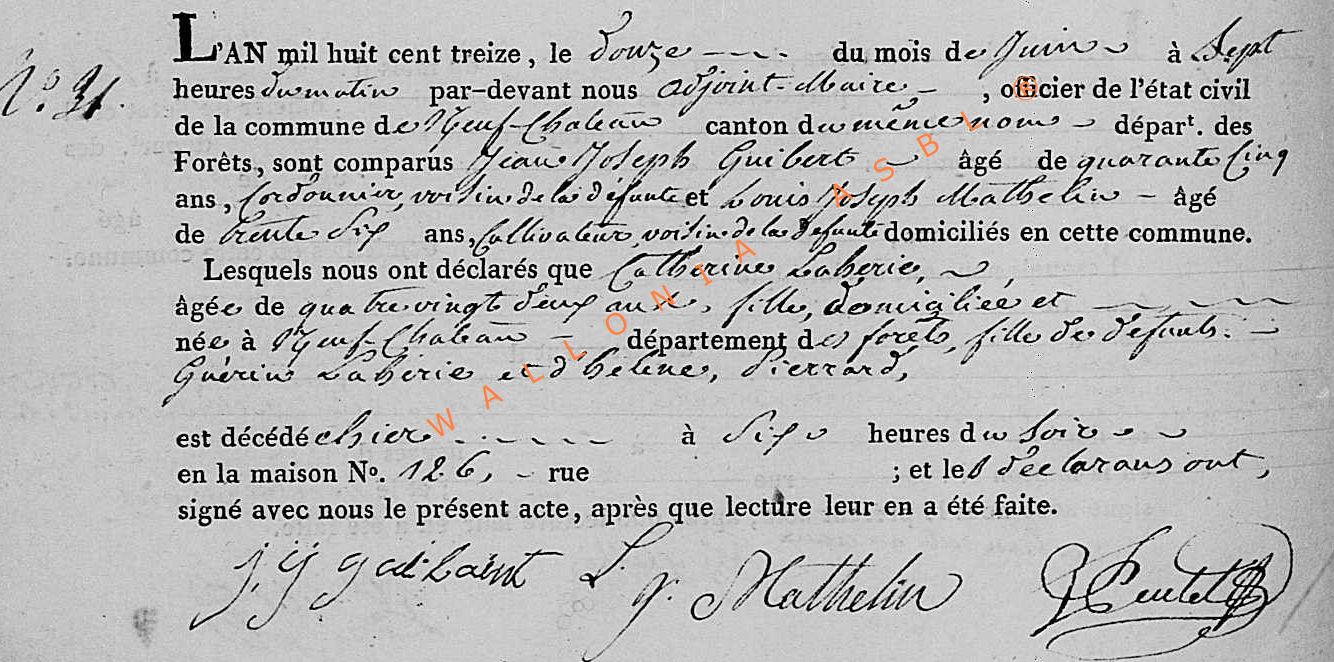 N.º 31.
L'AN mil huit cent treize, le douze du mois de Juin à Sept
heures du matin par-devant nous adjoint-Maire , officier de l'état civil
de la commune de Neuf-Chateau canton du même nom départ. des
Forêts, sont comparus Jean Joseph Guibert âgé de quarante Cinq
ans, Cordonnier, voisin de la défunte et Louis Joseph Mathelin - âgé
de trente Six ans, Cultivateur, voisin de la défunte domiciliés en cette commune.
Lesquels nous ont déclarés que Catherine Laherie,
âgée de quatre vingt deux ans, fille, domiciliée et
née à Neuf-Chateau - département des forêts, fille de défunts
Guérin Laherie et d'hélène, Pierrard,
est décédé e hier à Six heures du Soir
en la maison Nº. 126, - rue ; et les déclarans ont,
signé avec nous le présent acte, après que lecture leur en a été faite.
L. J. Mathelin
WALLONIA ASBL ©